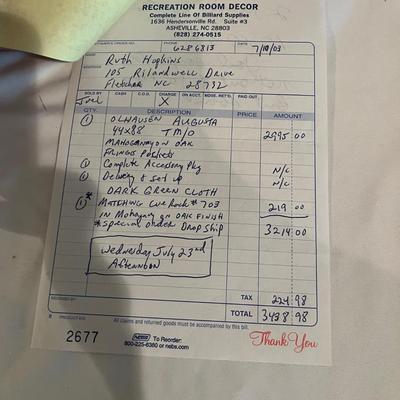 RECREATION ROOM DECOR
Complete Line Of Billiard Supplies
1636 Hendersonville Rd. Suite #3
ASHEVILLE, NC 28803
(828) 274-0515
PHONE 6286813 DATE 7/10/03
Ruth Hopkins
ADDRESS 105 Rilandwell Drive
Fletcher NC 28732
SOLD BY CASH C.O.D. CHARGE ON ACCT. MDSE. RET'D. PAID OUT
Joel X
QTY. DESCRIPTION PRICE AMOUNT
1 OLHAUSEN AUGUSTA
44x88 TMO 2995 00
MAHOGANY ON OAK
FRINGE Pockets
1 Complete Accessory Pkg N/C
1 Delivery & set up N/C
DARK GREEN CLOTH
1 * MATCHING Cue Rack # 703 219 00
IN Mahogany on OAK FINISH
*special order DROP ship 3214 00
Wednesday July 23rd
Afternoon
RECEIVED BY TAX 224.98
TOTAL 3438.98
All claims and returned goods must be accompanied by this bill.
2677
To Reorder:
800-225-6380 or nebs.com
Thank You